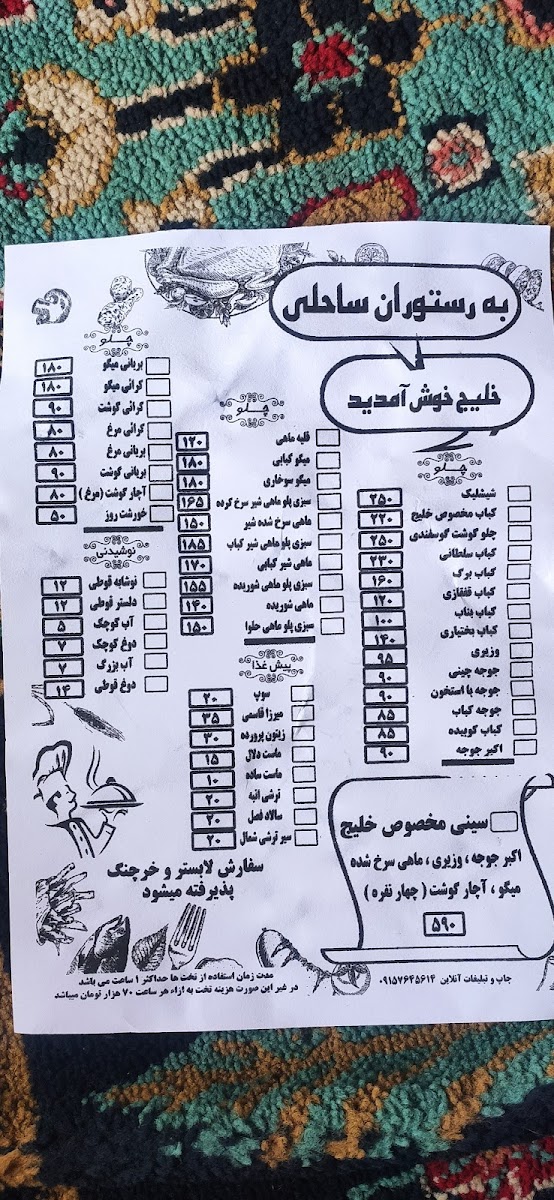 به رستوران ساحلی
خلیج خوش آمدید
چلو
شیشلیک ۲۵۰
کباب مخصوص خلیج ۲۲۰
چلو گوشت گوسفندی ۲۵۰
کباب سلطانی ۲۳۰
کباب برگ ۱۶۰
کباب قفقازی ۱۲۰
کباب بناب ۱۰۰
کباب بختیاری ۱۴۰
وزیری ۹۵
جوجه چینی ۹۰
جوجه با استخون ۹۰
جوجه کباب ۸۵
کباب کوبیده ۸۵
اکبر جوجه ۹۰
چلو
قلیه ماهی ۱۲۰
میگو کبابی ۱۸۰
میگو سوخاری ۱۸۰
سبزی پلو ماهی شیر سرخ کرده ۱۶۵
ماهی سرخ شده شیر ۱۵۰
سبزی پلو ماهی شیر کباب ۱۸۵
ماهی شیر کبابی ۱۷۰
سبزی پلو ماهی شوریده ۱۵۵
ماهی شوریده ۱۴۰
سبزی پلو ماهی حلوا ۱۵۰
پیش غذا
سوپ ۲۰
میرزا قاسمی ۳۵
زیتون پرورده ۳۰
ماست دلال ۱۵
ماست ساده ۱۰
ترشی انبه ۲۰
سالاد فصل ۲۰
سیر ترشی شمال ۲۰
چلو
بریانی میگو ۱۸۰
کرائی میگو ۱۸۰
کرائی گوشت ۹۰
کرائی مرغ ۸۰
بریانی مرغ ۸۰
بریانی گوشت ۹۰
آچار گوشت (مرغ) ۸۰
خورشت روز ۵۰
نوشیدنی
نوشابه قوطی ۱۲
دلستر قوطی ۱۲
آب کوچک ۵
دوغ کوچک ۷
آب بزرگ ۷
دوغ قوطی ۱۴
سینی مخصوص خلیج
اکبر جوجه ، وزیری ، ماهی سرخ شده
میگو ، آچار گوشت ( چهار نفره )
۵۹۰
سفارش لابستر و خرچنگ
پذیرفته میشود
مدت زمان استفاده از تخت ها حداکثر ۱ ساعت می باشد
در غیر این صورت هزینه تخت به ازاء هر ساعت ۷۰ هزار تومان میباشد
چاپ و تبلیغات آنلاین ۰۹۱۵۷۶۴۵۶۱۴